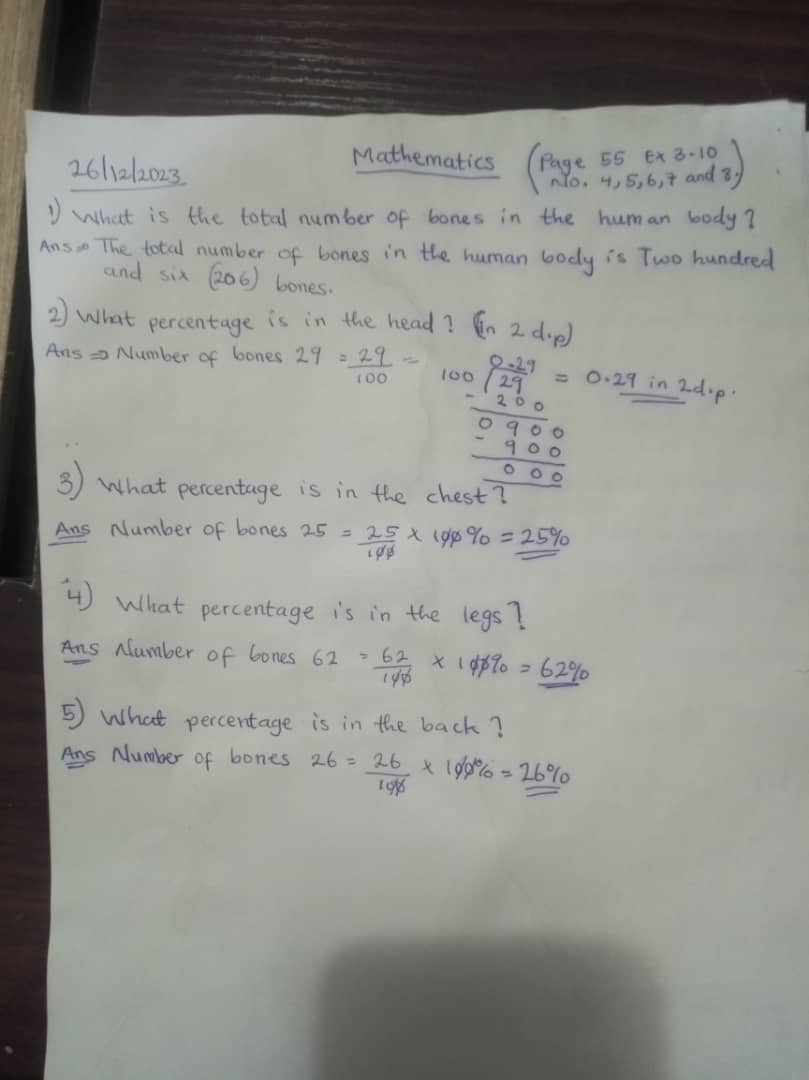 26/12/2023 Mathematics (Page 55 Ex 3.10
No. 4,5,6,7 and 8.)
1) What is the total number of bones in the human body?
Ans ⇒ The total number of bones in the human body is Two hundred
and six (206) bones.
2) What percentage is in the head? (in 2 d.p)
Ans ⇒ Number of bones 29 = 29/100 = 100 / 29 0.29 = 0.29 in 2d.p.
- 200
0900
- 900
000
3) What percentage is in the chest?
Ans Number of bones 25 = 25/100 x 100% = 25%
4) What percentage is in the legs?
Ans Number of bones 62 = 62/100 x 100% = 62%
5) What percentage is in the back?
Ans Number of bones 26 = 26/100 x 100% = 26%